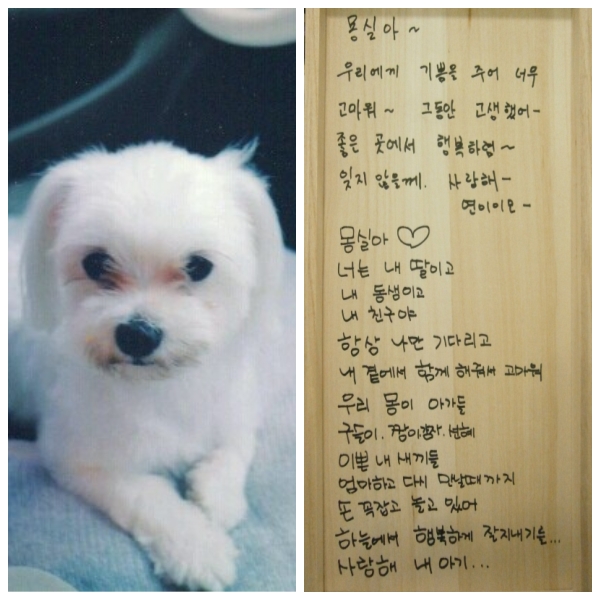 몽실아~
우리에게 기쁨을 주어 너무
고마워~ 그동안 고생했어-
좋은 곳에서 행복하렴~
잊지 않을께. 사랑해-
연이이모-
몽실아♡
너는 내 딸이고
내 동생이고
내 친구야
항상 나만 기다리고
내 곁에서 함께 해줘서 고마워
우리 몽이 아가들
구슬이.
이쁜 내 새끼들
엄마하고 다시 만날때까지
손 꼭잡고 놀고 있어
하늘에서 행복하게 잘지내기를...
사랑해 내 아기...